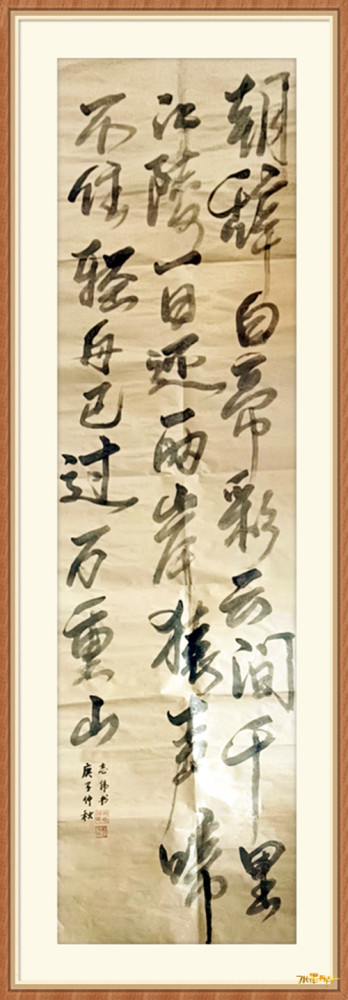 朝辞白帝彩云间千里
江陵一日还两岸猿声啼
不住轻舟已过万重山
庚子仲秋
志伟书